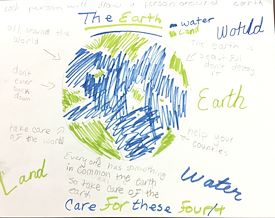 person will draw a person around earth
The Earth
water
Land
World
all around the
World
the earth is
don't
ever
back
down
Earth
take care
of the world
help your
countries
Everyone has something
in common the earth
So take care of the
earth
Land
Water
Care For these Four